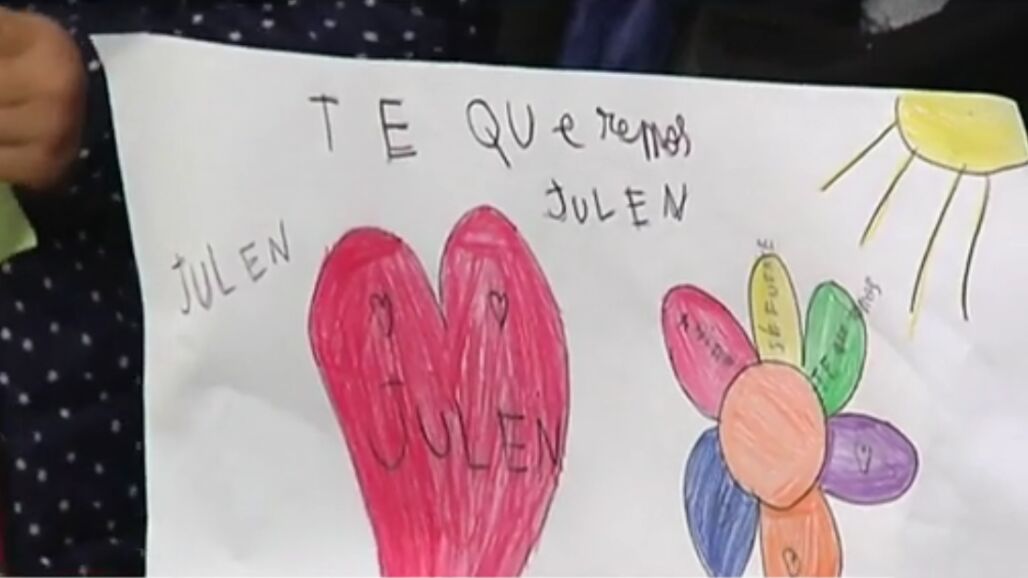 TE QUeremos
JULEN
JULEN
JULEN
SÉ FUERTE
TE queremos